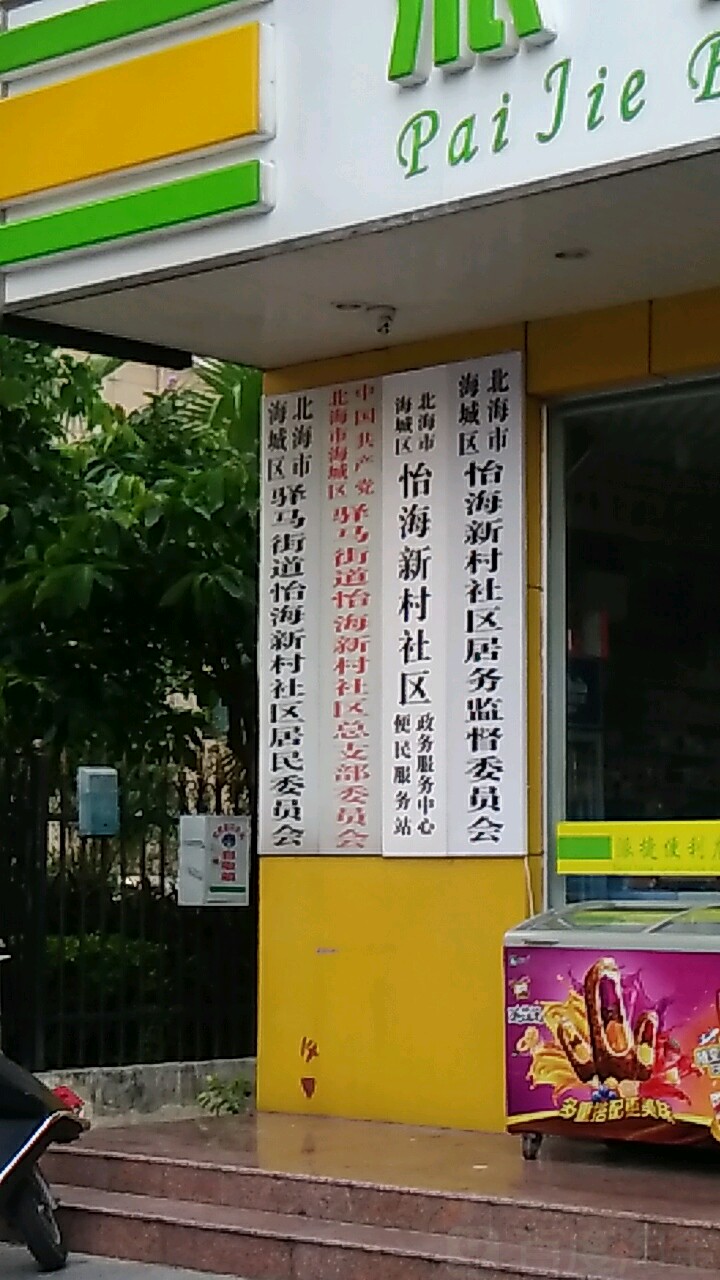 Pai Jie
北海市
海城区
驿马街道怡海新村社区居民委员会
中国共产党
北海市海城区
驿马街道怡海新村社区总支部委员会
北海市
海城区
怡海新村社区
政务服务中心
便民服务站
北海市
海城区
怡海新村社区居务监督委员会
派捷便利
多重搭配更美味